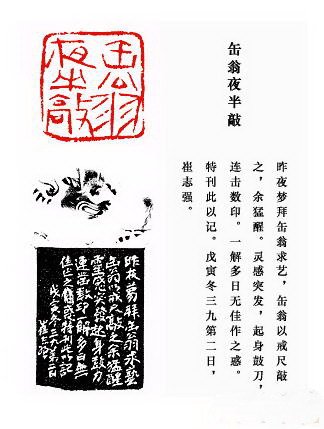 缶翁
夜半敲
缶翁夜半敲
昨夜梦拜缶翁求艺，缶翁以戒尺敲
之，余猛醒。灵感突发，起身鼓刀，
连击数印。一解多日无佳作之惑。
特刊此以记。戊寅冬三九第二日，
崔志强。
昨夜梦拜缶翁求艺
缶翁以戒尺敲之余猛醒
灵感突发起身鼓刀
连击数印一解多日无
佳作之惑特刊此以记
戊寅冬三九第二日
崔志强